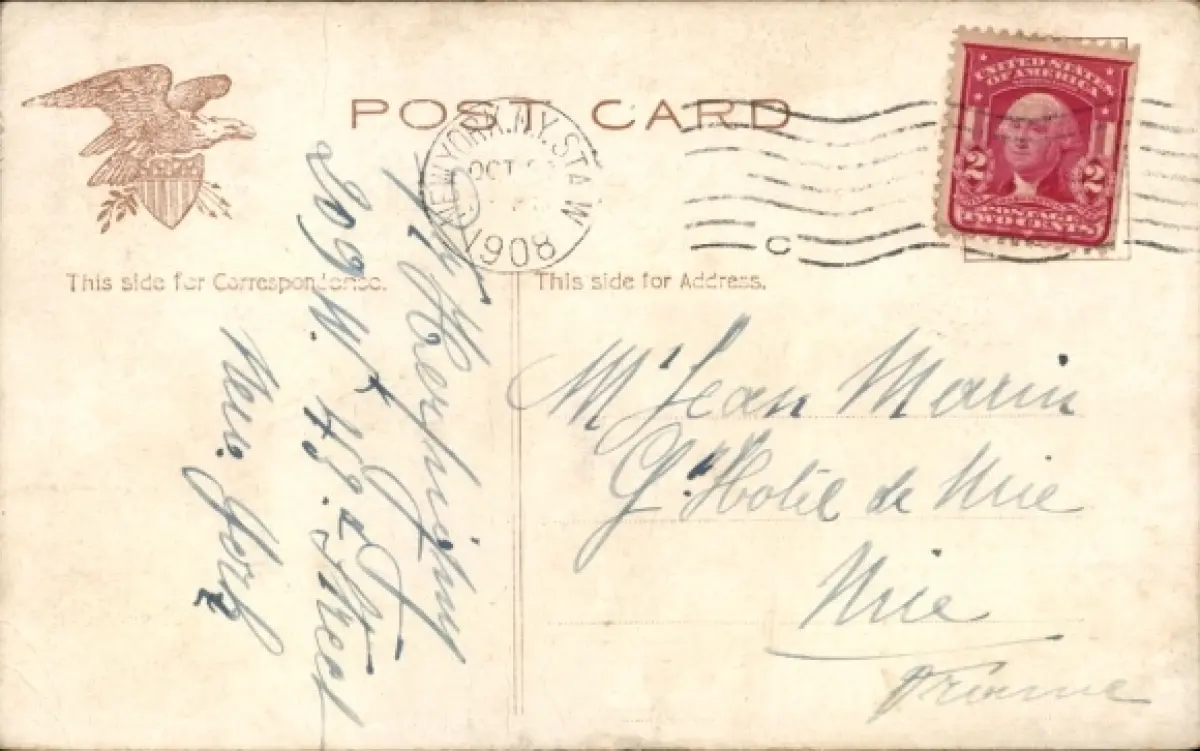 POST CARD
NEW YORK, N.Y. STA. W
OCT
1908
C
UNITED STATES
OF AMERICA
2 2
POSTAGE
TWO CENTS
This side for Correspondence.
This side for Address.
209 W.
Street
New York
Mr Jean Marin
Gd Hotel de Nice
Nice
France